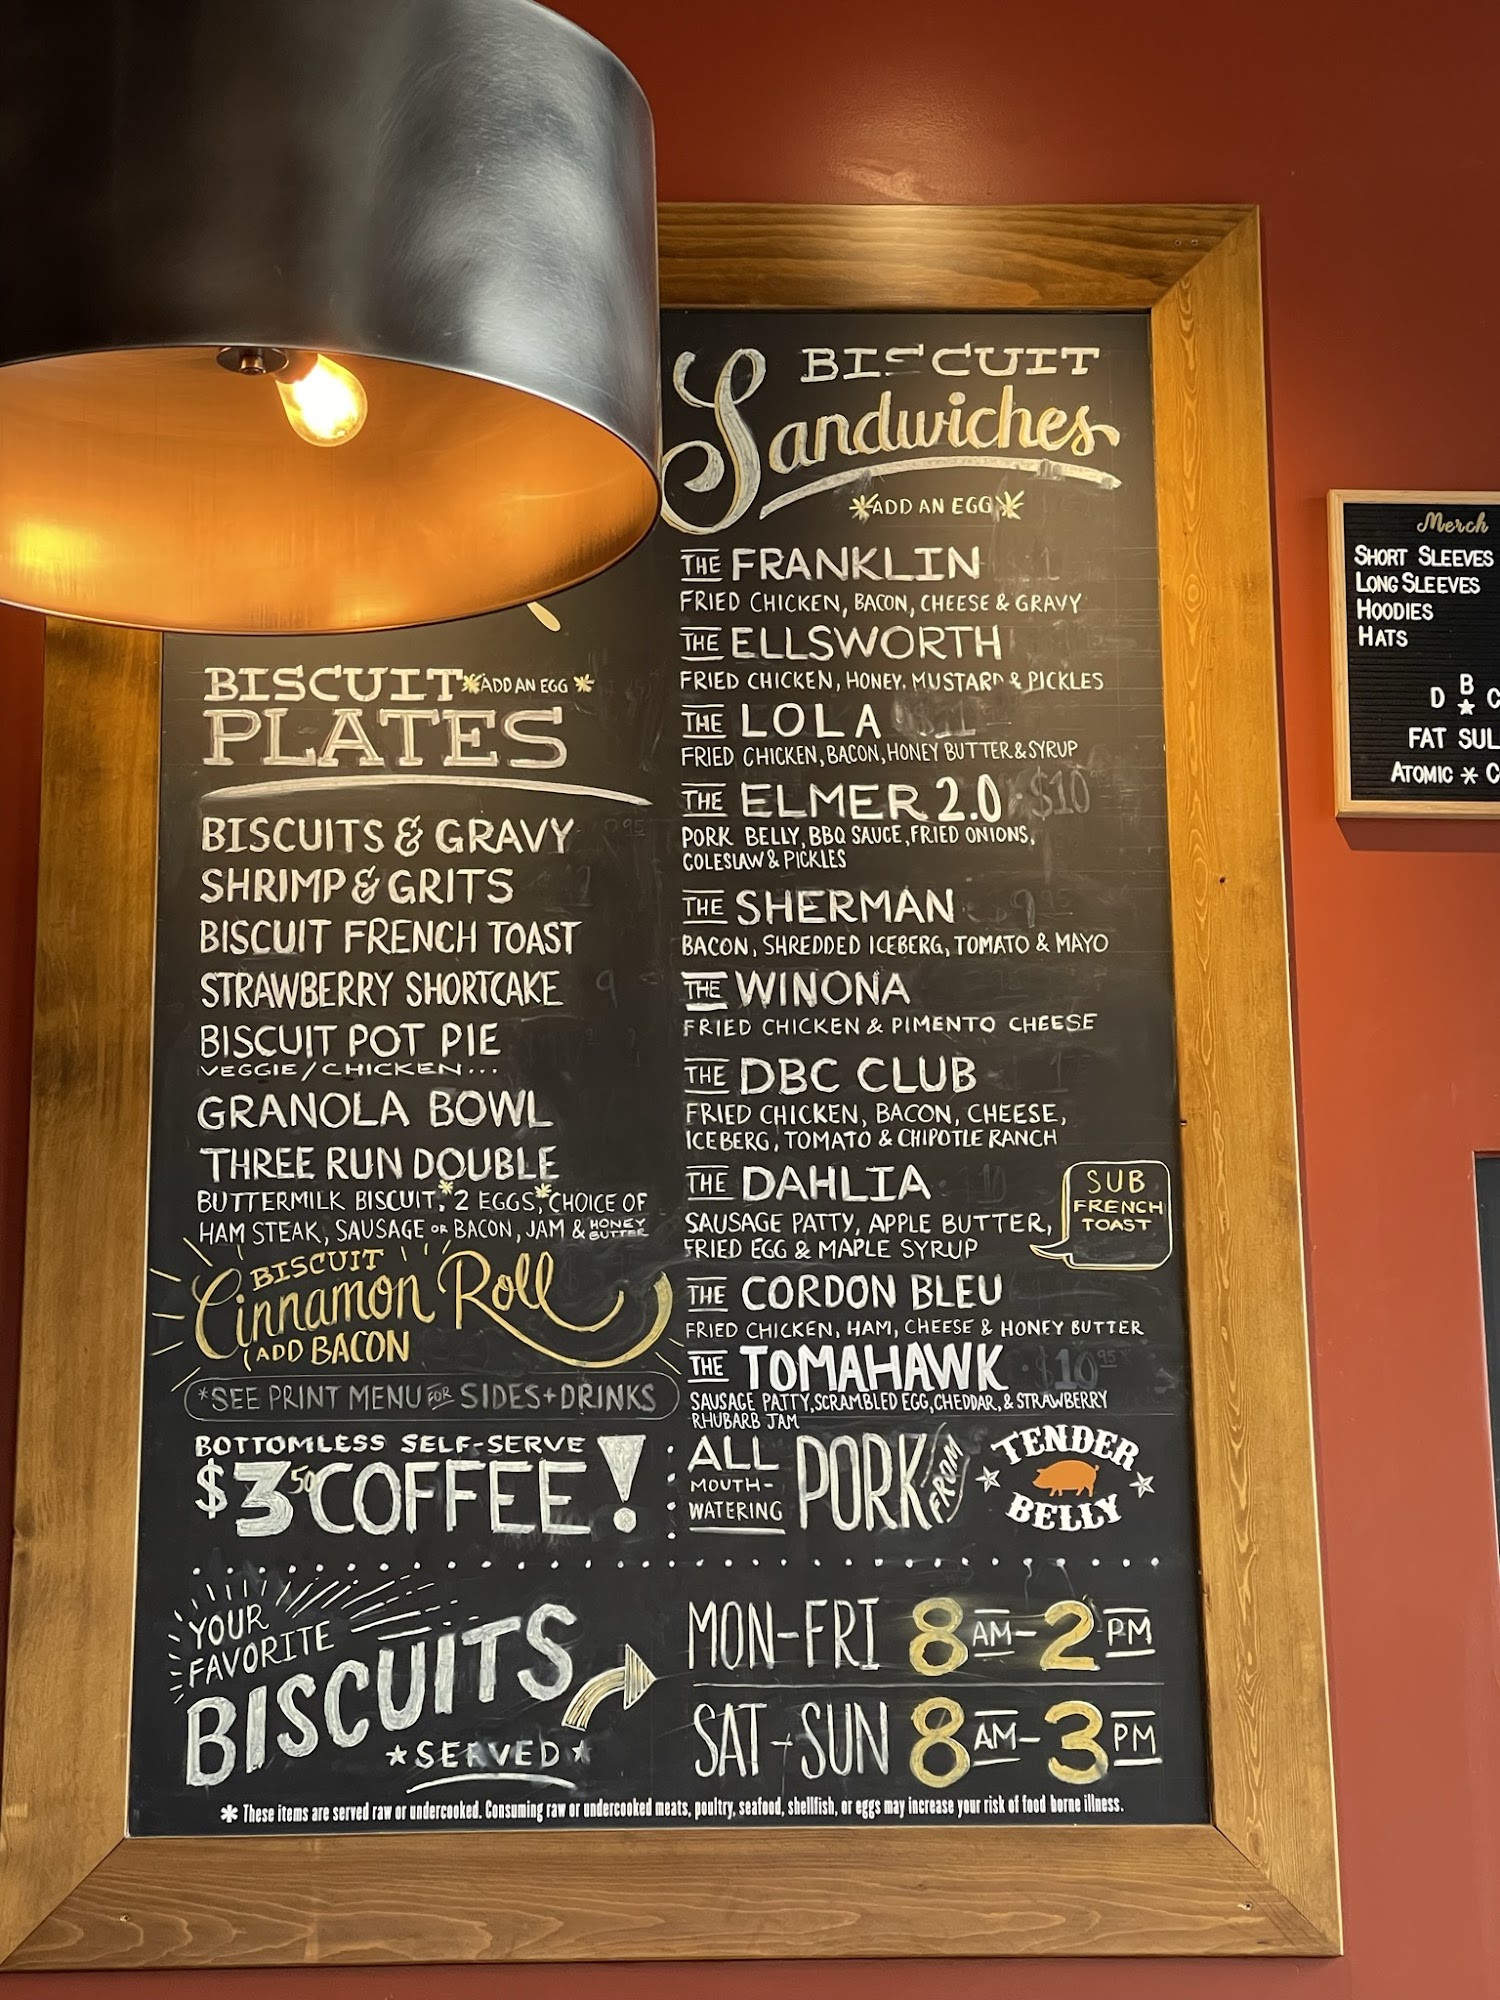 BISCUIT
PLATES
*ADD AN EGG*
BISCUITS & GRAVY
SHRIMP & GRITS
BISCUIT FRENCH TOAST
STRAWBERRY SHORTCAKE
BISCUIT POT PIE
VEGGIE/CHICKEN...
GRANOLA BOWL
THREE RUN DOUBLE
BUTTERMILK BISCUIT,* 2 EGGS,* CHOICE OF
HAM STEAK, SAUSAGE OR BACON, JAM & HONEY BUTTER
BISCUIT
Cinnamon Roll
(ADD BACON
*SEE PRINT MENU FOR SIDES+DRINKS
BOTTOMLESS SELF-SERVE
$3.50 COFFEE!
BISCUIT
Sandwiches
*ADD AN EGG*
THE FRANKLIN
FRIED CHICKEN, BACON, CHEESE & GRAVY
THE ELLSWORTH
FRIED CHICKEN, HONEY, MUSTARD & PICKLES
THE LOLA
FRIED CHICKEN, BACON, HONEY BUTTER & SYRUP
THE ELMER 2.0 $10
PORK BELLY, BBQ SAUCE, FRIED ONIONS,
COLESLAW & PICKLES
THE SHERMAN 9.95
BACON, SHREDDED ICEBERG, TOMATO & MAYO
THE WINONA
FRIED CHICKEN & PIMENTO CHEESE
THE DBC CLUB
FRIED CHICKEN, BACON, CHEESE,
ICEBERG, TOMATO & CHIPOTLE RANCH
THE DAHLIA 10
SAUSAGE PATTY, APPLE BUTTER,
FRIED EGG & MAPLE SYRUP
SUB
FRENCH
TOAST
THE CORDON BLEU
FRIED CHICKEN, HAM, CHEESE & HONEY BUTTER
THE TOMAHAWK $10.95
SAUSAGE PATTY, SCRAMBLED EGG, CHEDDAR, & STRAWBERRY
RHUBARB JAM
ALL
MOUTH-
WATERING
PORK FROM
TENDER
BELLY
YOUR
FAVORITE
BISCUITS
*SERVED*
MON-FRI 8AM-2PM
SAT-SUN 8AM-3PM
* These items are served raw or undercooked. Consuming raw or undercooked meats, poultry, seafood, shellfish, or eggs may increase your risk of food borne illness.
Merch
SHORT SLEEVES
LONG SLEEVES
HOODIES
HATS
B
D ★ C
FAT SUL
ATOMIC * C